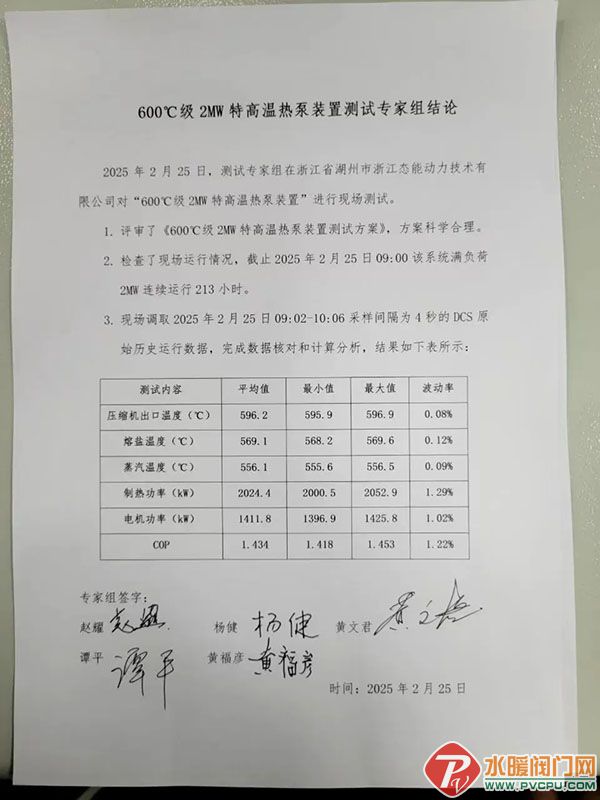 600℃级 2MW 特高温热泵装置测试专家组结论
2025 年 2 月 25 日，测试专家组在浙江省湖州市浙江态能动力技术有
限公司对“600℃级 2MW 特高温热泵装置”进行现场测试。
1. 评审了《600℃级 2MW 特高温热泵装置测试方案》，方案科学合理。
2. 检查了现场运行情况，截止 2025 年 2 月 25 日 09:00 该系统满负荷
2MW 连续运行 213 小时。
3. 现场调取 2025 年 2 月 25 日 09:02-10:06 采样间隔为 4 秒的 DCS 原
始历史运行数据，完成数据核对和计算分析，结果如下表所示：
测试内容 平均值 最小值 最大值 波动率
压缩机出口温度（℃） 596.2 595.9 596.9 0.08%
熔盐温度（℃） 569.1 568.2 569.6 0.12%
蒸汽温度（℃） 556.1 555.6 556.5 0.09%
制热功率（kW） 2024.4 2000.5 2052.9 1.29%
电机功率（kW） 1411.8 1396.9 1425.8 1.02%
COP 1.434 1.418 1.453 1.22%
专家组签字：
赵耀 赵耀 杨健 杨健 黄文君 黄文君
谭平 谭平 黄福彦 黄福彦
时间：2025 年 2 月 25 日
水暖阀门网
WWW.PVCPU.COM